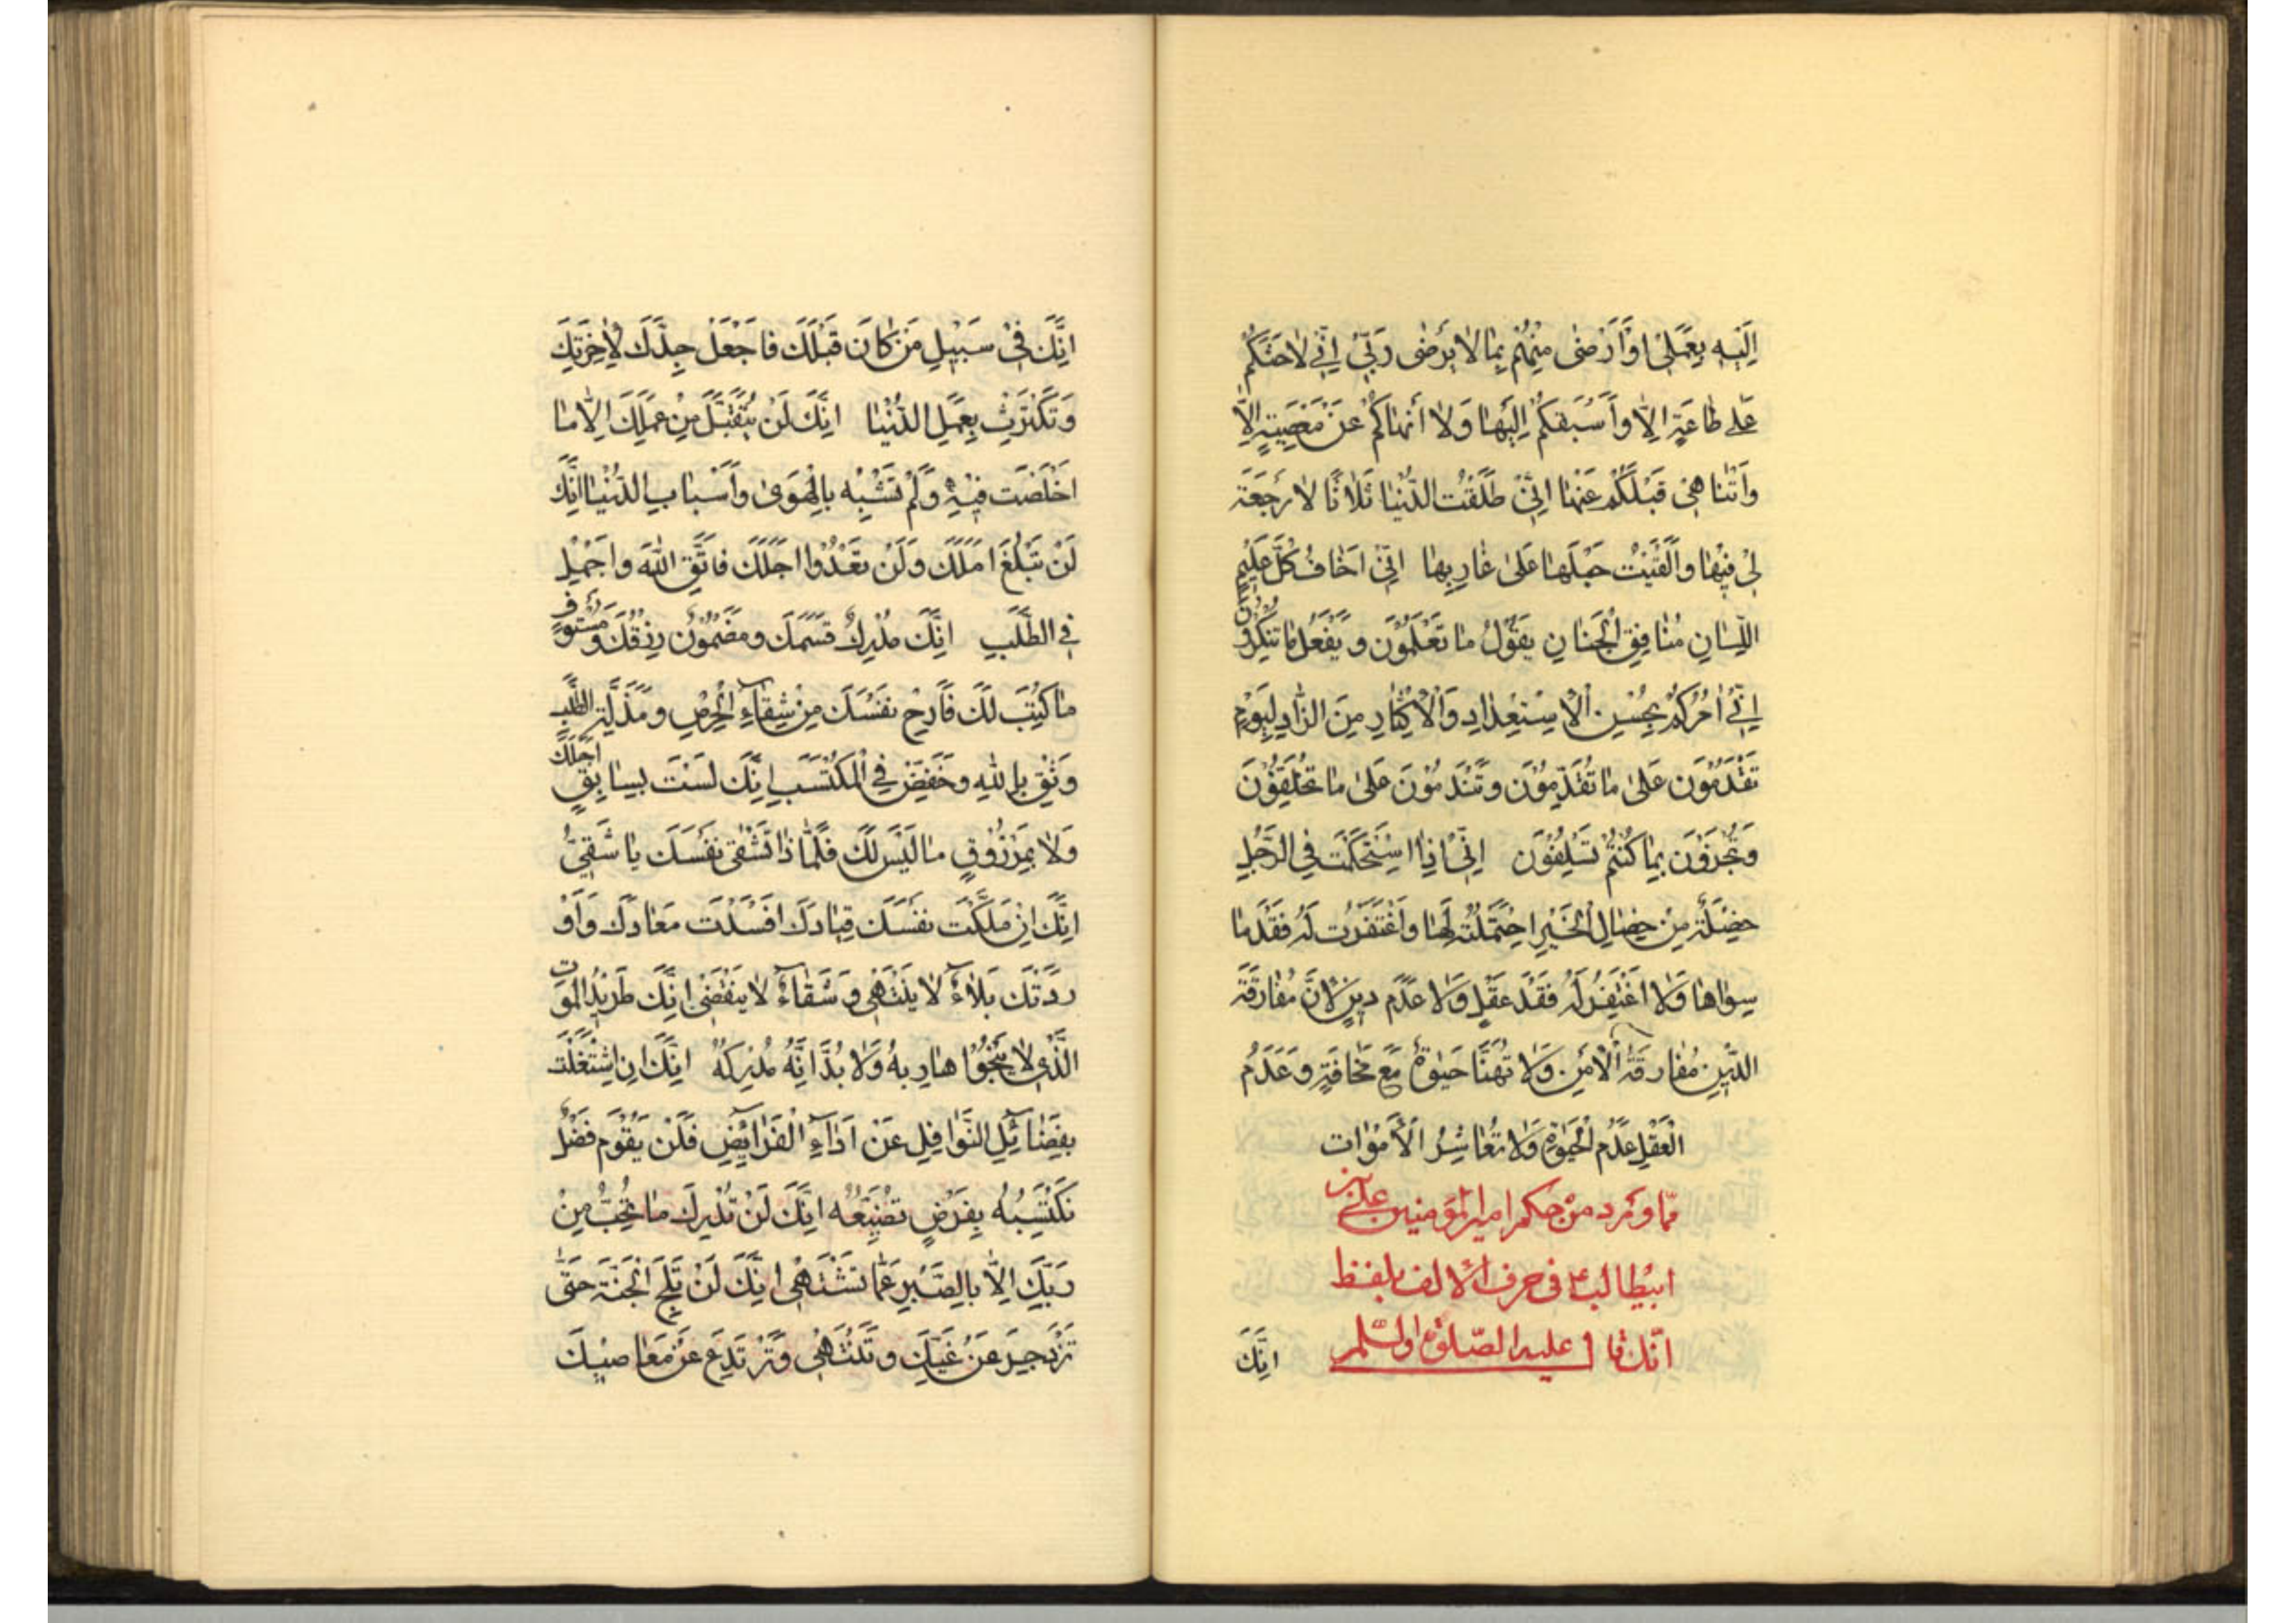 اِلَيْهِ بِعَمَلٍ اَوْ اَرْضٰى مِنْهُمْ بِمَا لَا يَرْضٰى رَبّي اِنّي لَا احَثُّكُمْ
عَلى طَاعَةٍ اِلَّا وَاَسْبِقُكُمْ اِلَيْهَا وَلَا اَنْهَاكُمْ عَنْ مَعْصِيَةٍ اِلَّا
وَاَتَنَاهىٰ قَبْلَكُمْ عَنْهَا اِنّي طَلَّقْتُ الدُّنْيَا ثَلَاثًا لَا رَجْعَةَ
لي فِيْهَا وَاَلْقَيْتُ حَبْلَهَا عَلىٰ غَارِبِهَا اِنّي اَخَافُ كُلَّ عَلِيْمِ
اللِّسَانِ مُنَافِقِ الْجَنَانِ يَقُوْلُ مَا تَعْلَمُوْنَ وَيَفْعَلُ مَا تُنْكِرُوْنَ
اِنّي اٰمُرُكُمْ بِحُسْنِ الْاِسْتِعْدَادِ وَالْاِكْثَارِ مِنَ الزَّادِ لِيَوْمٍ
تَقْدَمُوْنَ عَلىٰ مَا تُقَدِّمُوْنَ وَتَنْدَمُوْنَ عَلىٰ مَا تُخَلِّفُوْنَ
وَتُجْزَوْنَ بِمَا كُنْتُمْ تُسْلِفُوْنَ اِنّي اِذَا اسْتَحْكَمَتْ فِي الرَّجُلِ
خَصْلَةٌ مِنْ خِصَالِ الْخَيْرِ احْتَمَلْتُهُ لَهَا وَاغْتَفَرْتُ لَهُ فَقْدَ مَا
سِوَاهَا وَلَا اَغْتَفِرُ لَهُ فَقْدَ عَقْلٍ وَلَا عَدَمَ دِيْنٍ لِاَنَّ مُفَارَقَةَ
الدِّيْنِ مُفَارَقَةُ الْاَمْنِ وَلَا تَهْنَأُ حَيٰوةٌ مَعَ مَخَافَةٍ وَعَدَمُ
الْعَقْلِ عَدَمُ الْحَيٰوةِ وَلَا تُعَاشَرُ الْاَمْوَات
ممّا ورد من حكم امير المؤمنين على بن
ابيطالب ع فى حرف الالف بلفظ
انّك قال عليه الصّلوة والسّلم
اِنَّكَ
اِنَّكَ فِيْ سَبِيْلِ مَنْ كَانَ قَبْلَكَ فَاجْعَلْ جِدَّكَ لِاٰخِرَتِكَ
وَتَكْتَرِثْ بِعَمَلِ الدُّنْيَا اِنَّكَ لَنْ يُتَقَبَّلَ مِنْ عَمَلِكَ اِلَّا مَا
اَخْلَصْتَ فِيْهِ وَلَمْ تَشُبْهُ بِالْهَوىٰ وَاَسْبَابِ الدُّنْيَا اِنَّكَ
لَنْ تَبْلُغَ اَمَلَكَ وَلَنْ تَعْدُوا اَجَلَكَ فَاتَّقِ اللّٰهَ وَاَجْمِلْ
فِي الطَّلَبِ اِنَّكَ مُدْرِكٌ قِسْمَكَ وَمَضْمُوْنٌ رِزْقُكَ وَمُسْتَوْفٍ
مَا كُتِبَ لَكَ فَاَرِحْ نَفْسَكَ مِنْ شِقَاءِ الْحِرْصِ وَمَذَلَّةِ الطَّلَبِ
وَثِقْ بِاللّٰهِ وَخَفِّضْ فِي الْمُكْتَسَبِ اِنَّكَ لَسْتَ بِسَابِقٍ اَجَلَكَ
وَلَا بِمَرْزُوْقٍ مَا لَيْسَ لَكَ فَلِمَاذَا تُشْقى نَفْسَكَ يَا شَقِيُّ
اِنَّكَ اِنْ مَلَكْتَ نَفْسَكَ قِيَادَكَ اَفْسَدْتَ مَعَادَكَ وَاَوْ
رَدَتْكَ بَلَاءً لَا يَنْتَهي وَشَقَاءً لَا يَنْقَضي اِنَّكَ طَرِيْدُ الْمَوْت
الَّذي لَا يَنْجُوْا هَارِبُهُ وَلَا بُدَّ اَنَّهُ مُدْرِكُهُ اِنَّكَ اِنِ اشْتَغَلْتَ
بِفَضَائِلِ النَّوَافِلِ عَنْ اَدَاءِ الْفَرَائِضِ فَلَنْ يَقُوْمَ فَضْلٌ
تَكْتَسِبُهُ بِفَرْضٍ تُضَيِّعُهُ اِنَّكَ لَنْ تُدْرِكَ مَا تُحِبُّ مِنْ
رَبِّكَ اِلَّا بِالصَّبْرِ عَمَّا تَشْتَهي اِنَّكَ لَنْ تَلِجَ الْجَنَّةَ حَتّٰى
تَزْدَجِرَ عَنْ غَيِّكَ وَتَنْتَهي وَتَرْتَدِعَ عَنْ مَعَاصيْكَ